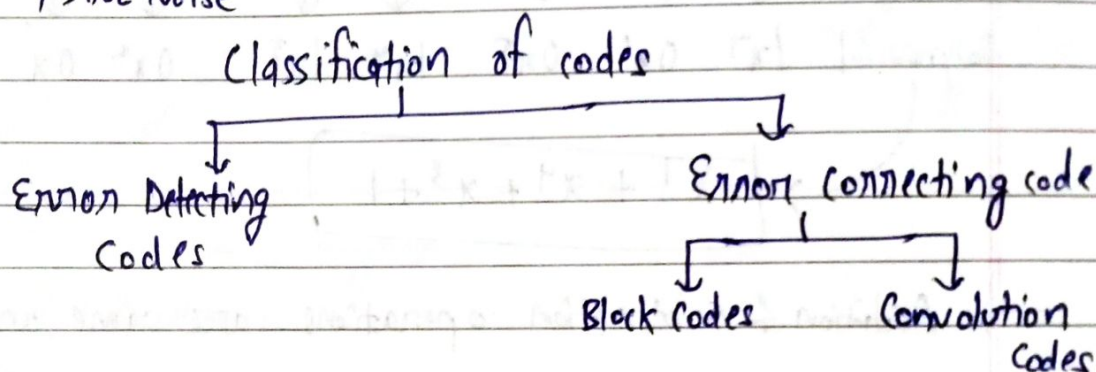 Classification of codes
Error Detecting
Codes
Error Correcting code
Block Codes
Convolution
Codes